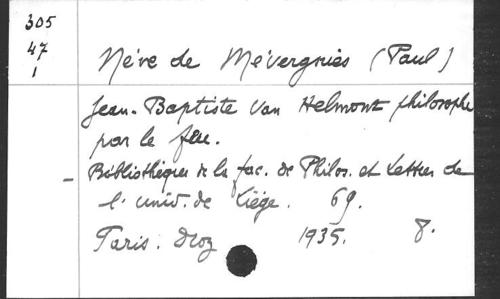 305
47
1
Nève de Mévergnies (Paul)
Jean-Baptiste Van Helmont philosophe
par le feu.
- Bibliothèque de la fac. de Philos. et Lettres de
l'univ. de Liège. 69.
Paris. Droz 1935. 8.